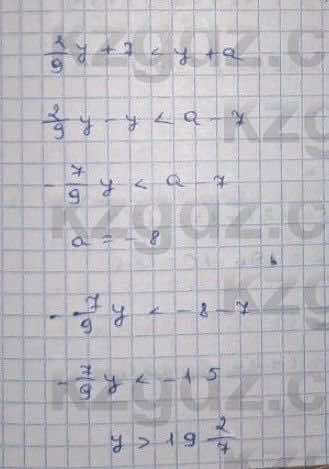 2/9 y + 7 < y + a
2/9 y - y < a - 7
- 7/9 y < a - 7
a = - 8
- 7/9 y < - 8 - 7
- 7/9 y < - 15
y > 19 2/7
kzgdz.c